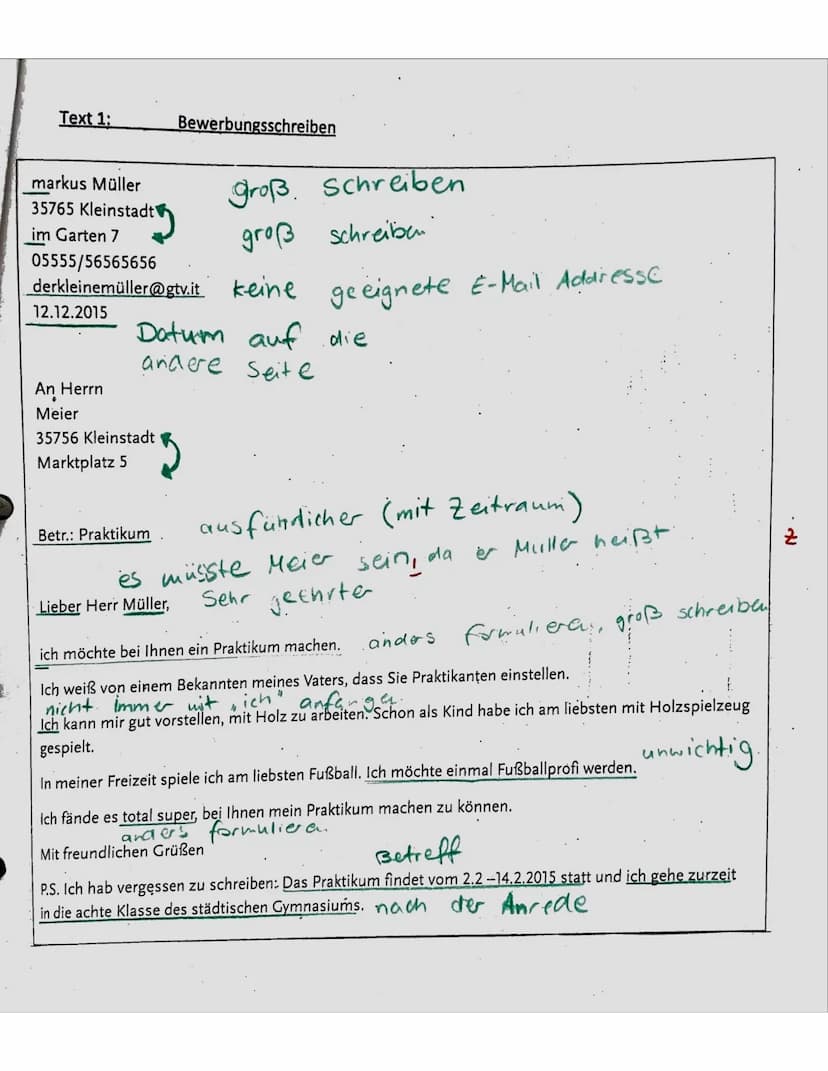 Text 1: Bewerbungsschreiben
markus Müller groß schreiben
35765 Kleinstadt
im Garten 7 groß schreiben
05555/56565656
derkleinemüller@gtv.it keine geeignete E-Mail Addresse
12.12.2015
Datum auf die
andere Seite
An Herrn
Meier
35756 Kleinstadt
Marktplatz 5
Betr.: Praktikum ausführlicher (mit Zeitraum)
es müsste Meier sein, da er Müller heißt
z
Lieber Herr Müller, Sehr geehrter
ich möchte bei Ihnen ein Praktikum machen. anders formulieren, groß schreiben
Ich weiß von einem Bekannten meines Vaters, dass Sie Praktikanten einstellen.
nicht immer mit „ich" anfangen
Ich kann mir gut vorstellen, mit Holz zu arbeiten. Schon als Kind habe ich am liebsten mit Holzspielzeug
gespielt.
unwichtig
In meiner Freizeit spiele ich am liebsten Fußball. Ich möchte einmal Fußballprofi werden.
Ich fände es total super, bei Ihnen mein Praktikum machen zu können.
anders formulieren
Mit freundlichen Grüßen
Betreff
P.S. Ich hab vergessen zu schreiben: Das Praktikum findet vom 2.2 –14.2.2015 statt und ich gehe zurzeit
in die achte Klasse des städtischen Gymnasiums. nach der Anrede